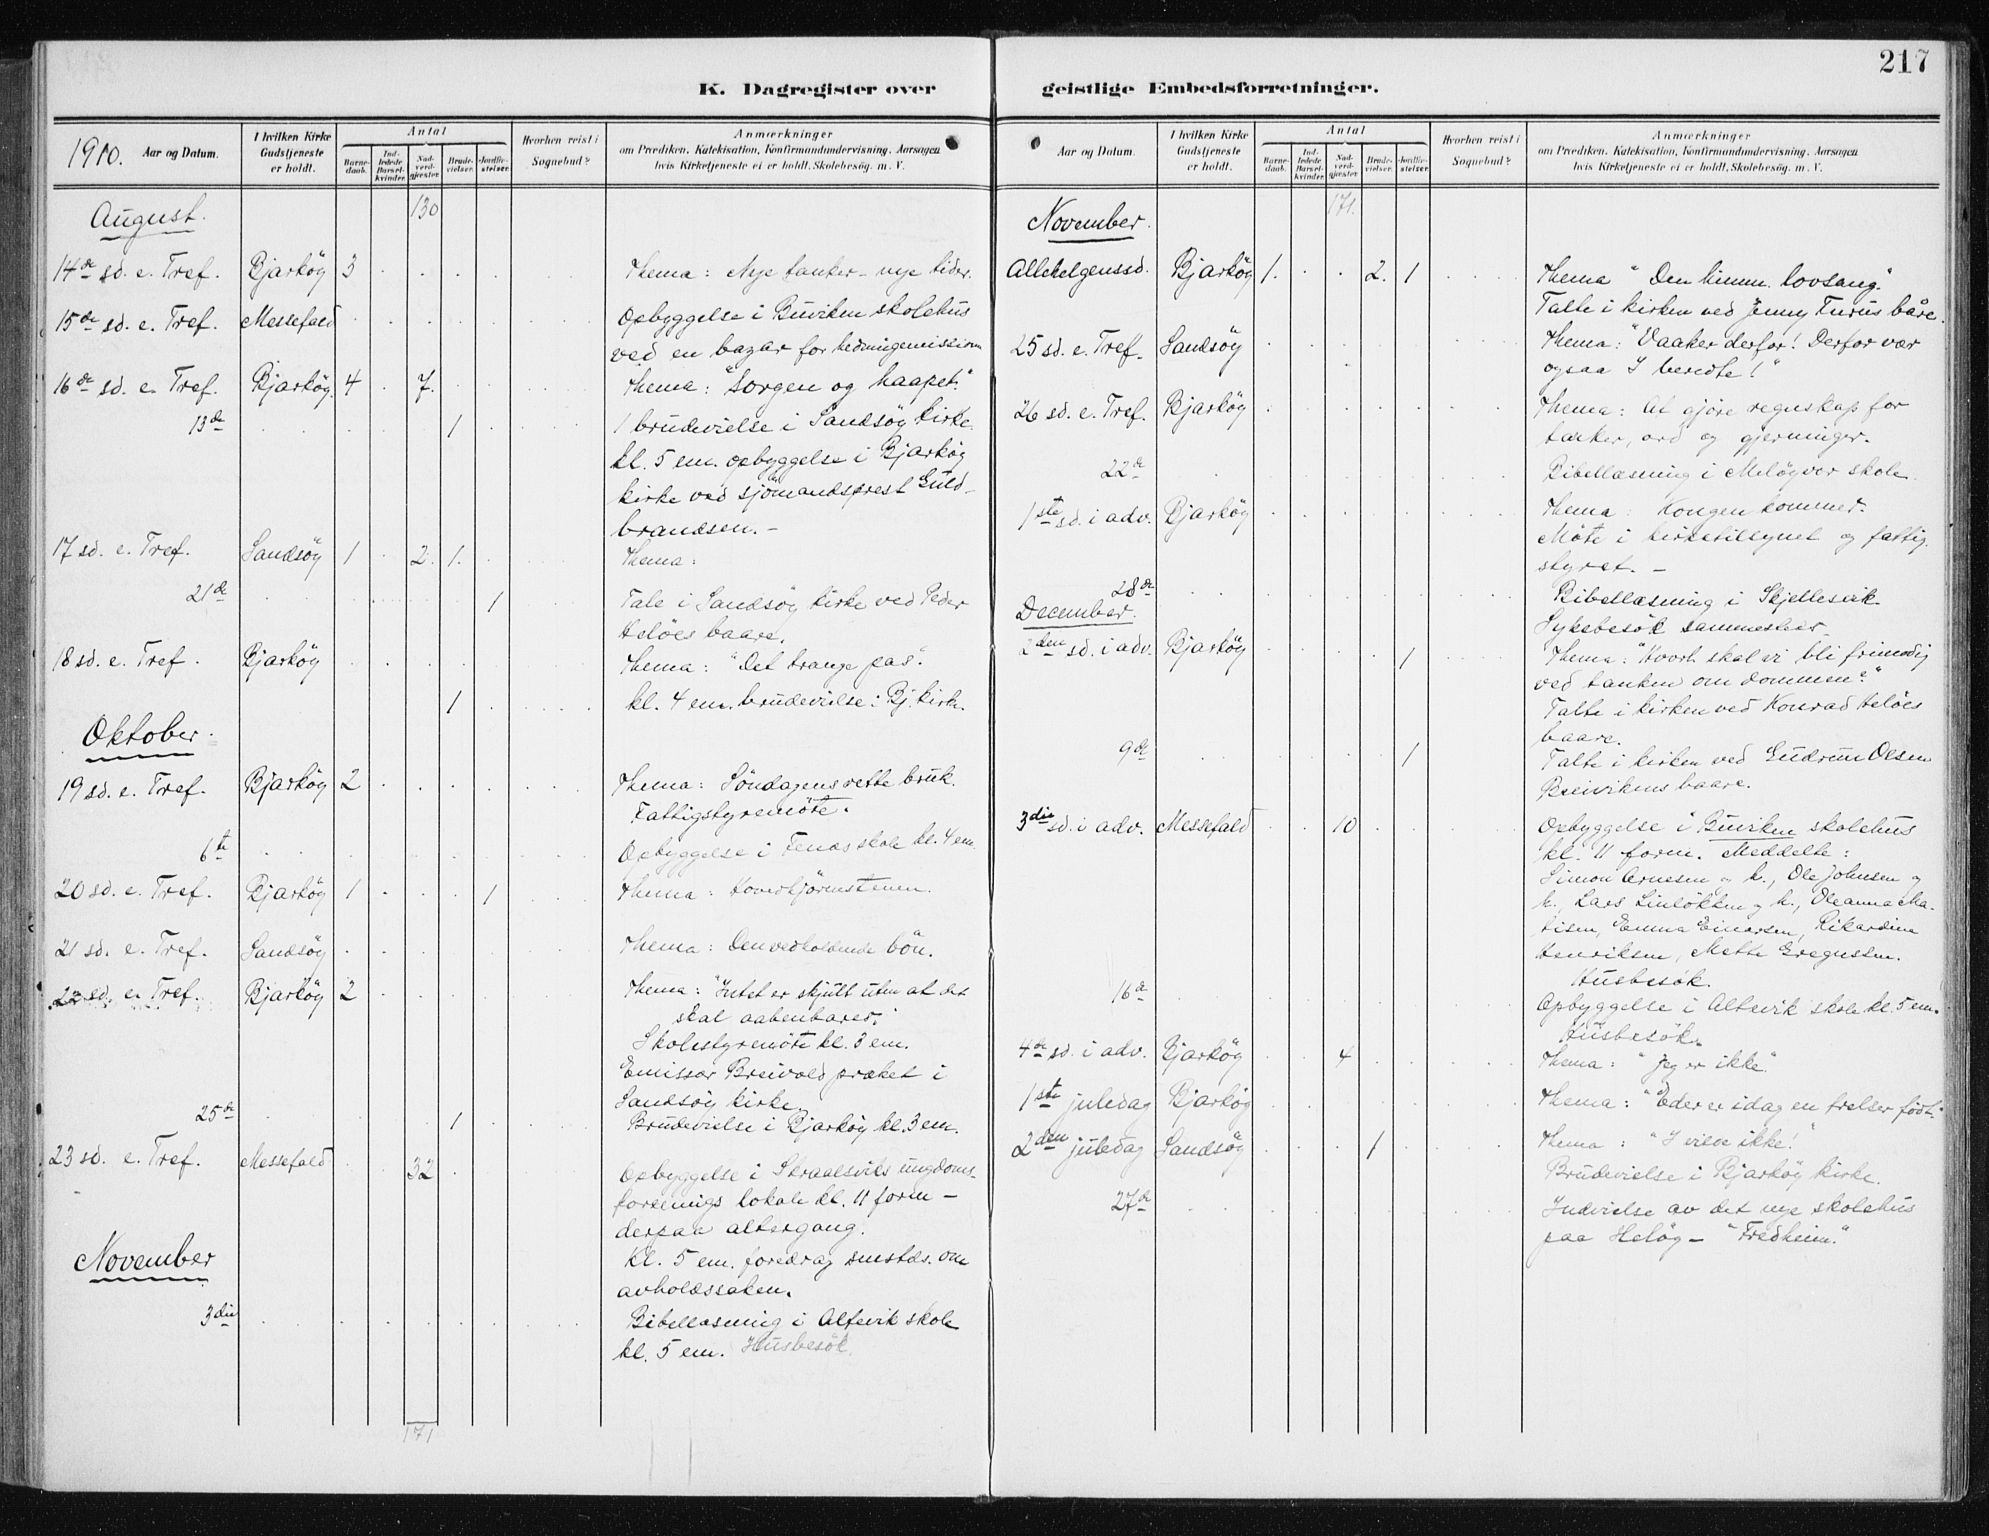 217
K. Dagregister over geistlige Embedsforretninger.
1910. Aar og Datum.
I hvilken Kirke Gudstjeneste er holdt.
Antal
Barnedaab.
Indledede Barselkvinder.
Nadverdgjester.
Brudevielser.
Jordfæstelser.
Hvorhen reist i Sognebud?
Anmærkninger
om Prædiken. Katekisation, Konfirmandundervisning. Aarsagen
hvis Kirketjeneste ei er holdt. Skolebesøg. m. V.
August. 130
14de sd. e. Tref. Bjarköy 3 Thema: Nye tanker - nye tider.
15de sd. e. Tref. Messefald Opbyggelse i Buviken skolehus
ved en bazar for hedningemissionen
16de sd. e. Tref. Bjarköy. 4 7. Thema: "Sorgen og haapet."
13de 1 1 brudevielse i Sandsöy kirke.
kl. 5 em. opbyggelse i Bjarköy
kirke ved sjömandsprest Guld-
brandsen. -
17 sd. e. Tref. Sandsöy 1 2. 1. Thema:
21de 1 Tale i Sandsöy kirke ved Peder
Helöes baare.
18 sd. e. Tref. Bjarköy Thema: "Det trange pas".
1 kl. 4 em. brudevielse i Bj. kirke.
Oktober.
19 sd. e. Tref. Bjarköy 2 Thema: Söndagens rette bruk.
Fattigstyremöte.
6te Opbyggelse i Fenes skole kl. 4 em.
20 sd. e. Tref. Bjarköy 1 1 Thema: Hovedhjörnestenen.
21 sd. e. Tref. Sandsöy Thema: Den vedholdende bön.
22 sd. e. Tref. Bjarköy 2 Thema: "Intet er skjult uten at det
skal aabenbares."
Skolestyremöte kl. 3 em.
Emissær Breivold præket i
Sandsöy kirke.
25de 1 Brudevielse i Bjarköy kl. 3 em.
23 sd. e. Tref. Messefald 32 Opbyggelse i Skraalsviks ungdoms-
forenings lokale kl. 11 form -
derpaa altergang.
Kl. 5 em. foredrag smstds. om
avholdssaken.
November
3die Bibellæsning i Altevik skole
kl. 5 em. Husbesök.
171
Aar og Datum.
I hvilken Kirke Gudstjeneste er holdt.
Antal
Barnedaab.
Indledede Barselkvinder.
Nadverdgjester.
Brudevielser.
Jordfæstelser.
Hvorhen reist i Sognebud?
Anmærkninger
om Prædiken. Katekisation, Konfirmandundervisning. Aarsagen
hvis Kirketjeneste ei er holdt, Skolebesøg. m. V.
November. 171.
Allehelgenssd. Bjarköy 1. 2. 1 Thema "Den himm. lovsang."
Talte i kirken ved Jenny Furus båre.
25 sd. e. Tref. Sandsöy Thema: "Vaaker derfor! Derfor vær
ogsaa I beredte!"
26 sd. e. Tref. Bjarköy Thema: At gjöre regnskap for
tanker, ord og gjerninger.
22de Bibellæsning i Melöyvær skole.
1ste sd. i adv. Bjarköy Thema: Kongen kommer.
Möte i kirketilsynet og fattig-
styret. -
28de Bibellæsning i Skjellesvik.
Sykebesök sammesteds.
December.
2den sd. i adv. Bjarköy 1 Thema: "Hvorl. skal vi bli frimodig
ved tanken om dommen?"
Talte i kirken ved Konrad Helöes
baare.
9de 1 Talte i kirken ved Gudrun Olsen
Breivikens baare.
3die sd. i adv. Messefald 10 Opbyggelse i Buviken skolehus
kl. 11 form. Meddelte:
Simon Arnesen og h., Ole Johnsen og
h., Lars Linlökken og h., Oleanna Ma-
tisen, Emma Einarsen, Rikardine
Henriksen, Mette Gregussen.
Husbesök.
16de Opbyggelse i Altevik skole kl. 5 em.
Husbesök.
4de sd. i adv. Bjarköy 4 Thema: "Jeg er ikke."
1ste juledag Bjarköy Thema: "Eder er idag en frelser födt."
2den juledag Sandsöy 1 Thema: "I vilde ikke!"
Brudevielse i Bjarköy kirke.
27de Indvielse av det nye skolehus
paa Helöy - "Fredheim."